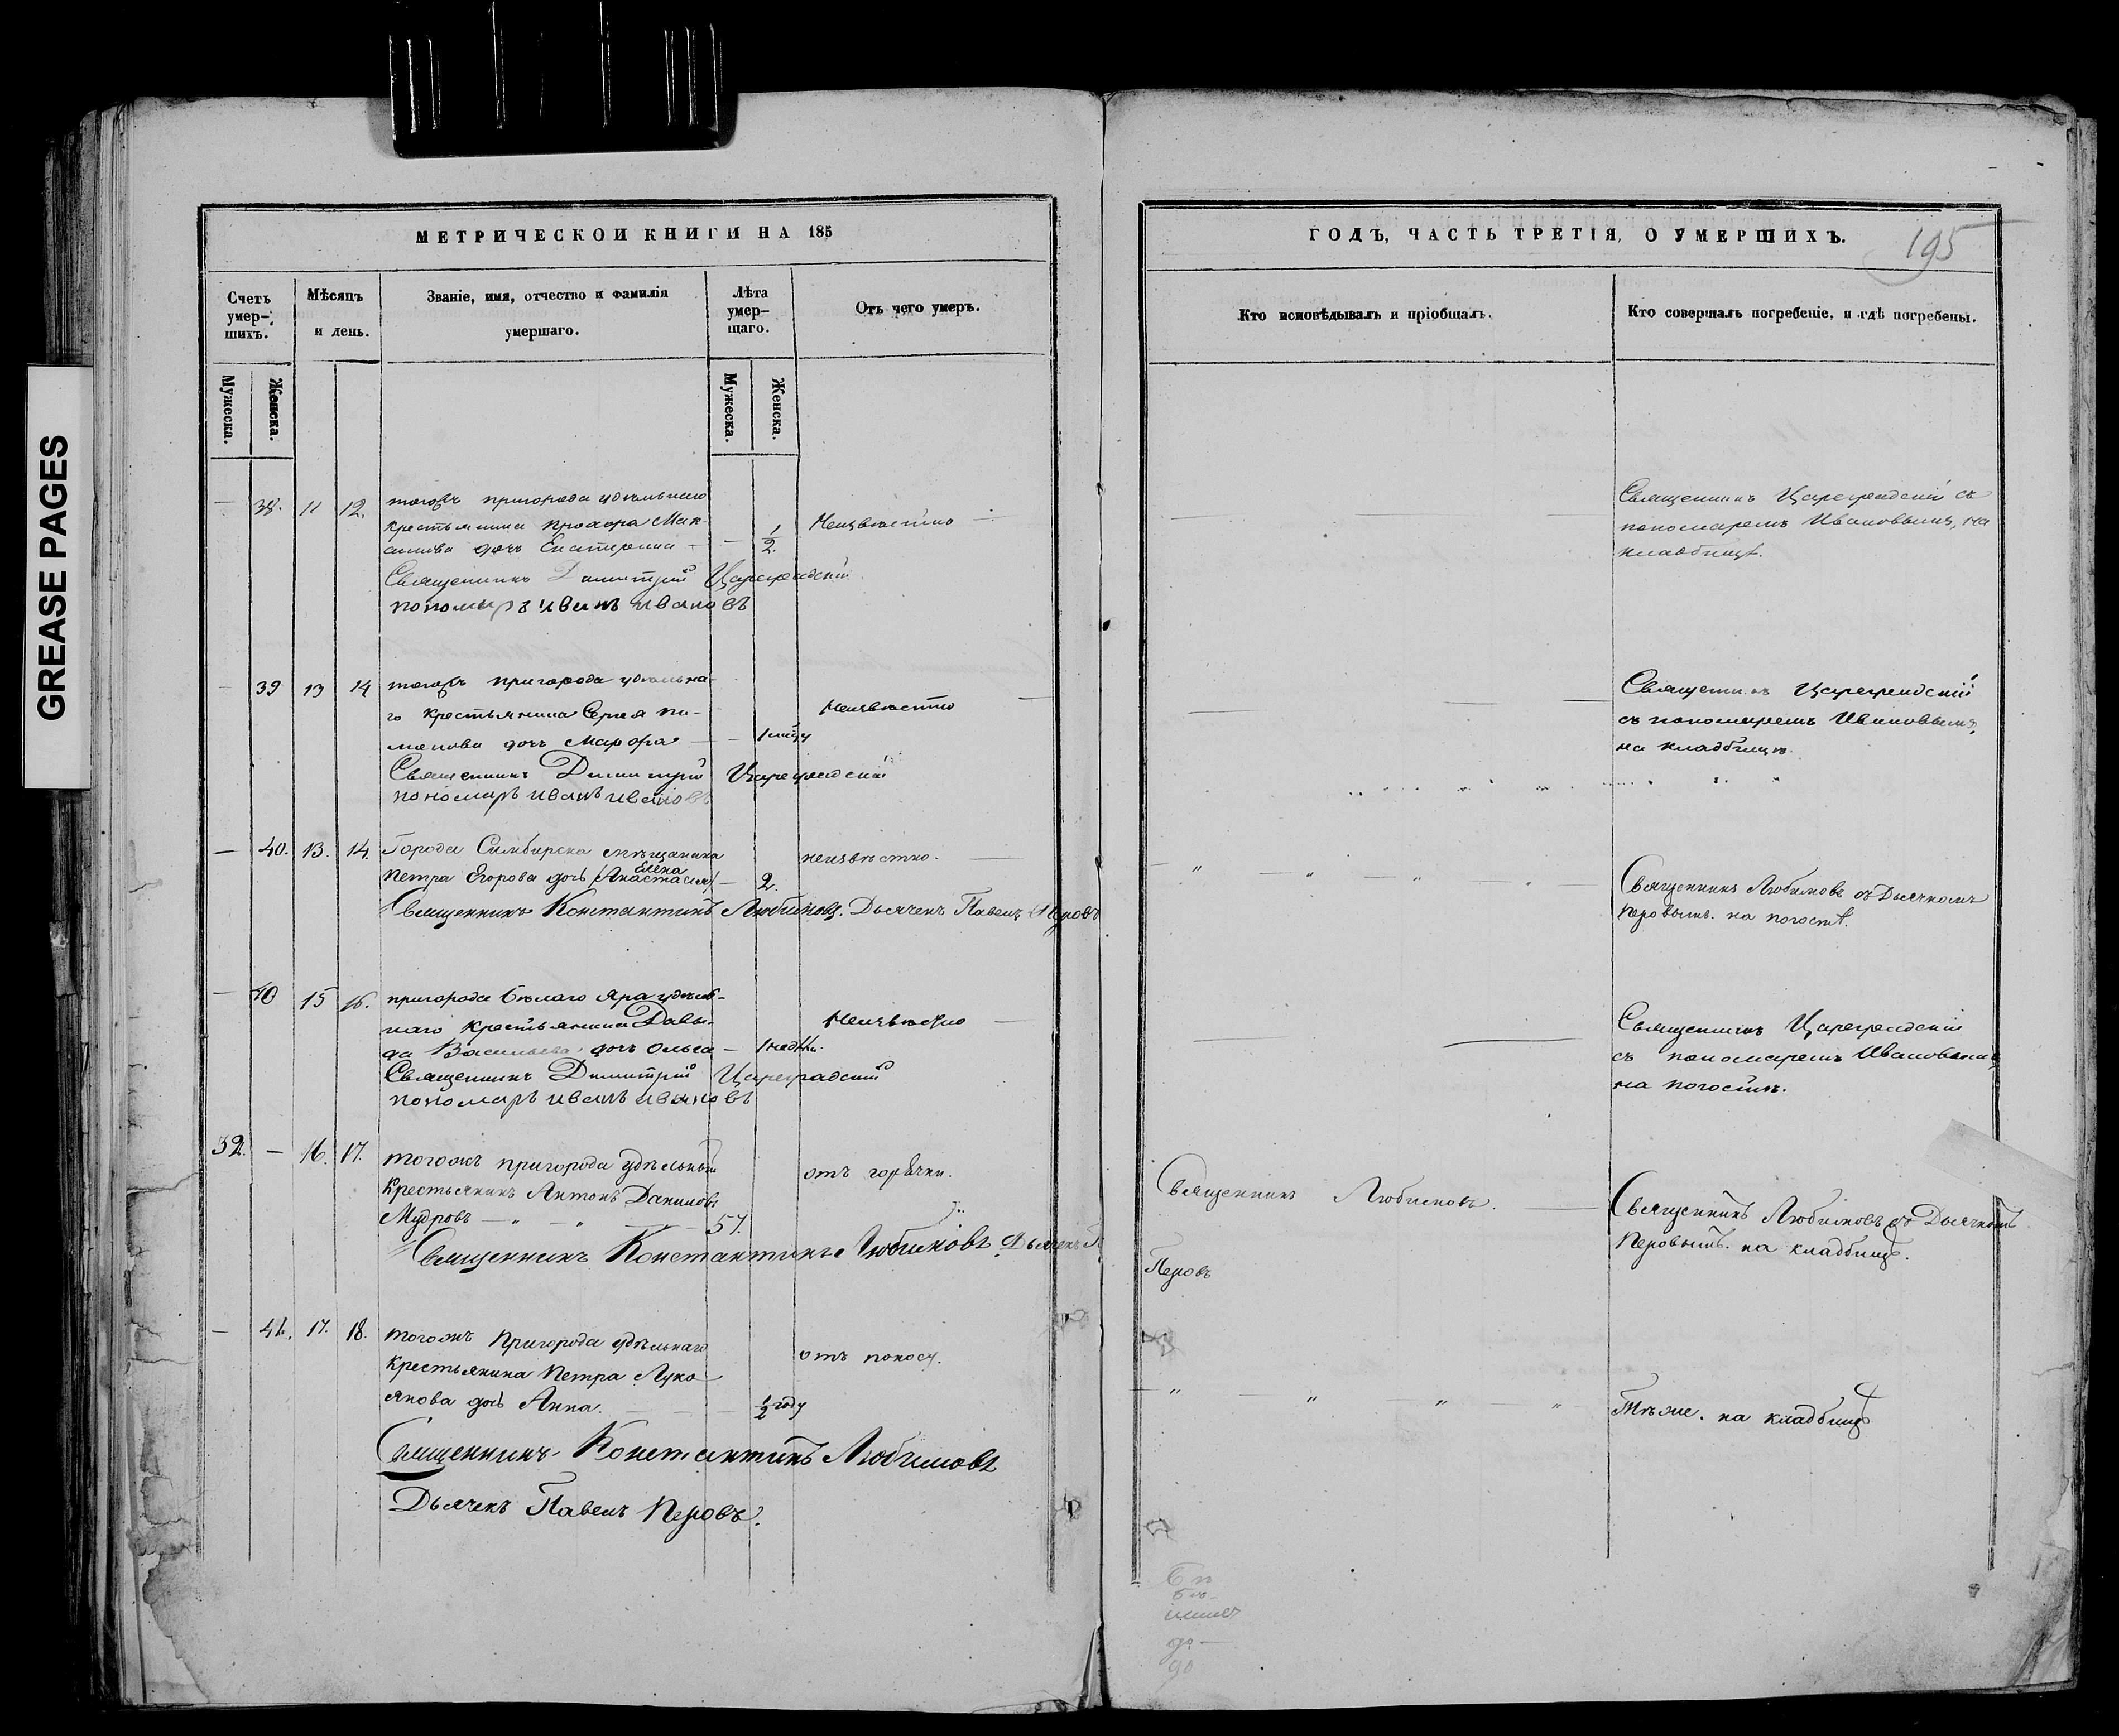 GREASE PAGES
МЕТРИЧЕСКОЙ КНИГИ НА 185
Счетъ умер-шихъ.
Мѣсяцъ и день.
Званіе, имя, отчество и фамилія умершаго.
Лѣта умер-шаго.
Отъ чего умеръ.
Мужеска.
Женска.
Мужеска.
Женска.
— 38. 11 12. тогожъ пригорода удѣльнаго
крестьянина Прохора Мак-
симова дочь Екатерина — — 1/2. Неизвѣстно —
Священникъ Димитрій Цареградскій
пономарь иванъ ивановъ
— 39 13 14 тогожъ пригорода удѣльна-
го крестьянина Сергея Пи-
менова дочь Марфа — — Неизвѣстно —
Священникъ Димитрій Цареградскій
пономарь иванъ ивановъ
— 40. 13. 14. Города Симбирска мѣщанина
Елена
Петра Егорова дочь (Анастасія) — 2. неизвѣстно. —
Священникъ Константинъ Любимовъ. Дьячекъ Павелъ Перовъ
— 40 15 16. пригорода Бѣлаго Яра удѣль-
наго крестьянина Давы-
да Васильева дочь Ольга — 1 недѣли. Неизвѣстно —
Священникъ Димитрій Цареградскій
пономарь иванъ ивановъ
32. — 16. 17. тогожъ пригорода удѣльный
Крестьянинъ Антонъ Даниловъ
Мудровъ — 57. отъ горячки.
Священникъ Константинъ Любимовъ. Дьячекъ П
— 41. 17. 18. тогожъ Пригорода удѣльнаго
Крестьянина Петра Луко
янова дочь Анна. 1/2 году отъ поносу.
Священникъ Константинъ Любимовъ
Дьячекъ Павелъ Перовъ.
ГОДЪ, ЧАСТЬ ТРЕТІЯ, О УМЕРШИХЪ.
195
Кто исповѣдывалъ и пріобщалъ.
Кто совершалъ погребеніе, и гдѣ погребены.
Священникъ Цареградскій съ
пономаремъ Ивановымъ, на
кладбищѣ.
Священникъ Цареградскій
съ пономаремъ Ивановымъ,
на кладбищѣ.
Священникъ Любимовъ съ Дьячкомъ
Перовымъ. на погостѣ.
Священникъ Цареградскій
съ пономаремъ Ивановымъ,
на погостѣ.
Священникъ Любимовъ.
Перовъ
Священникъ Любимовъ съ Дьячкомъ
Перовымъ. на кладбищѣ.
Тѣже. на кладбищѣ